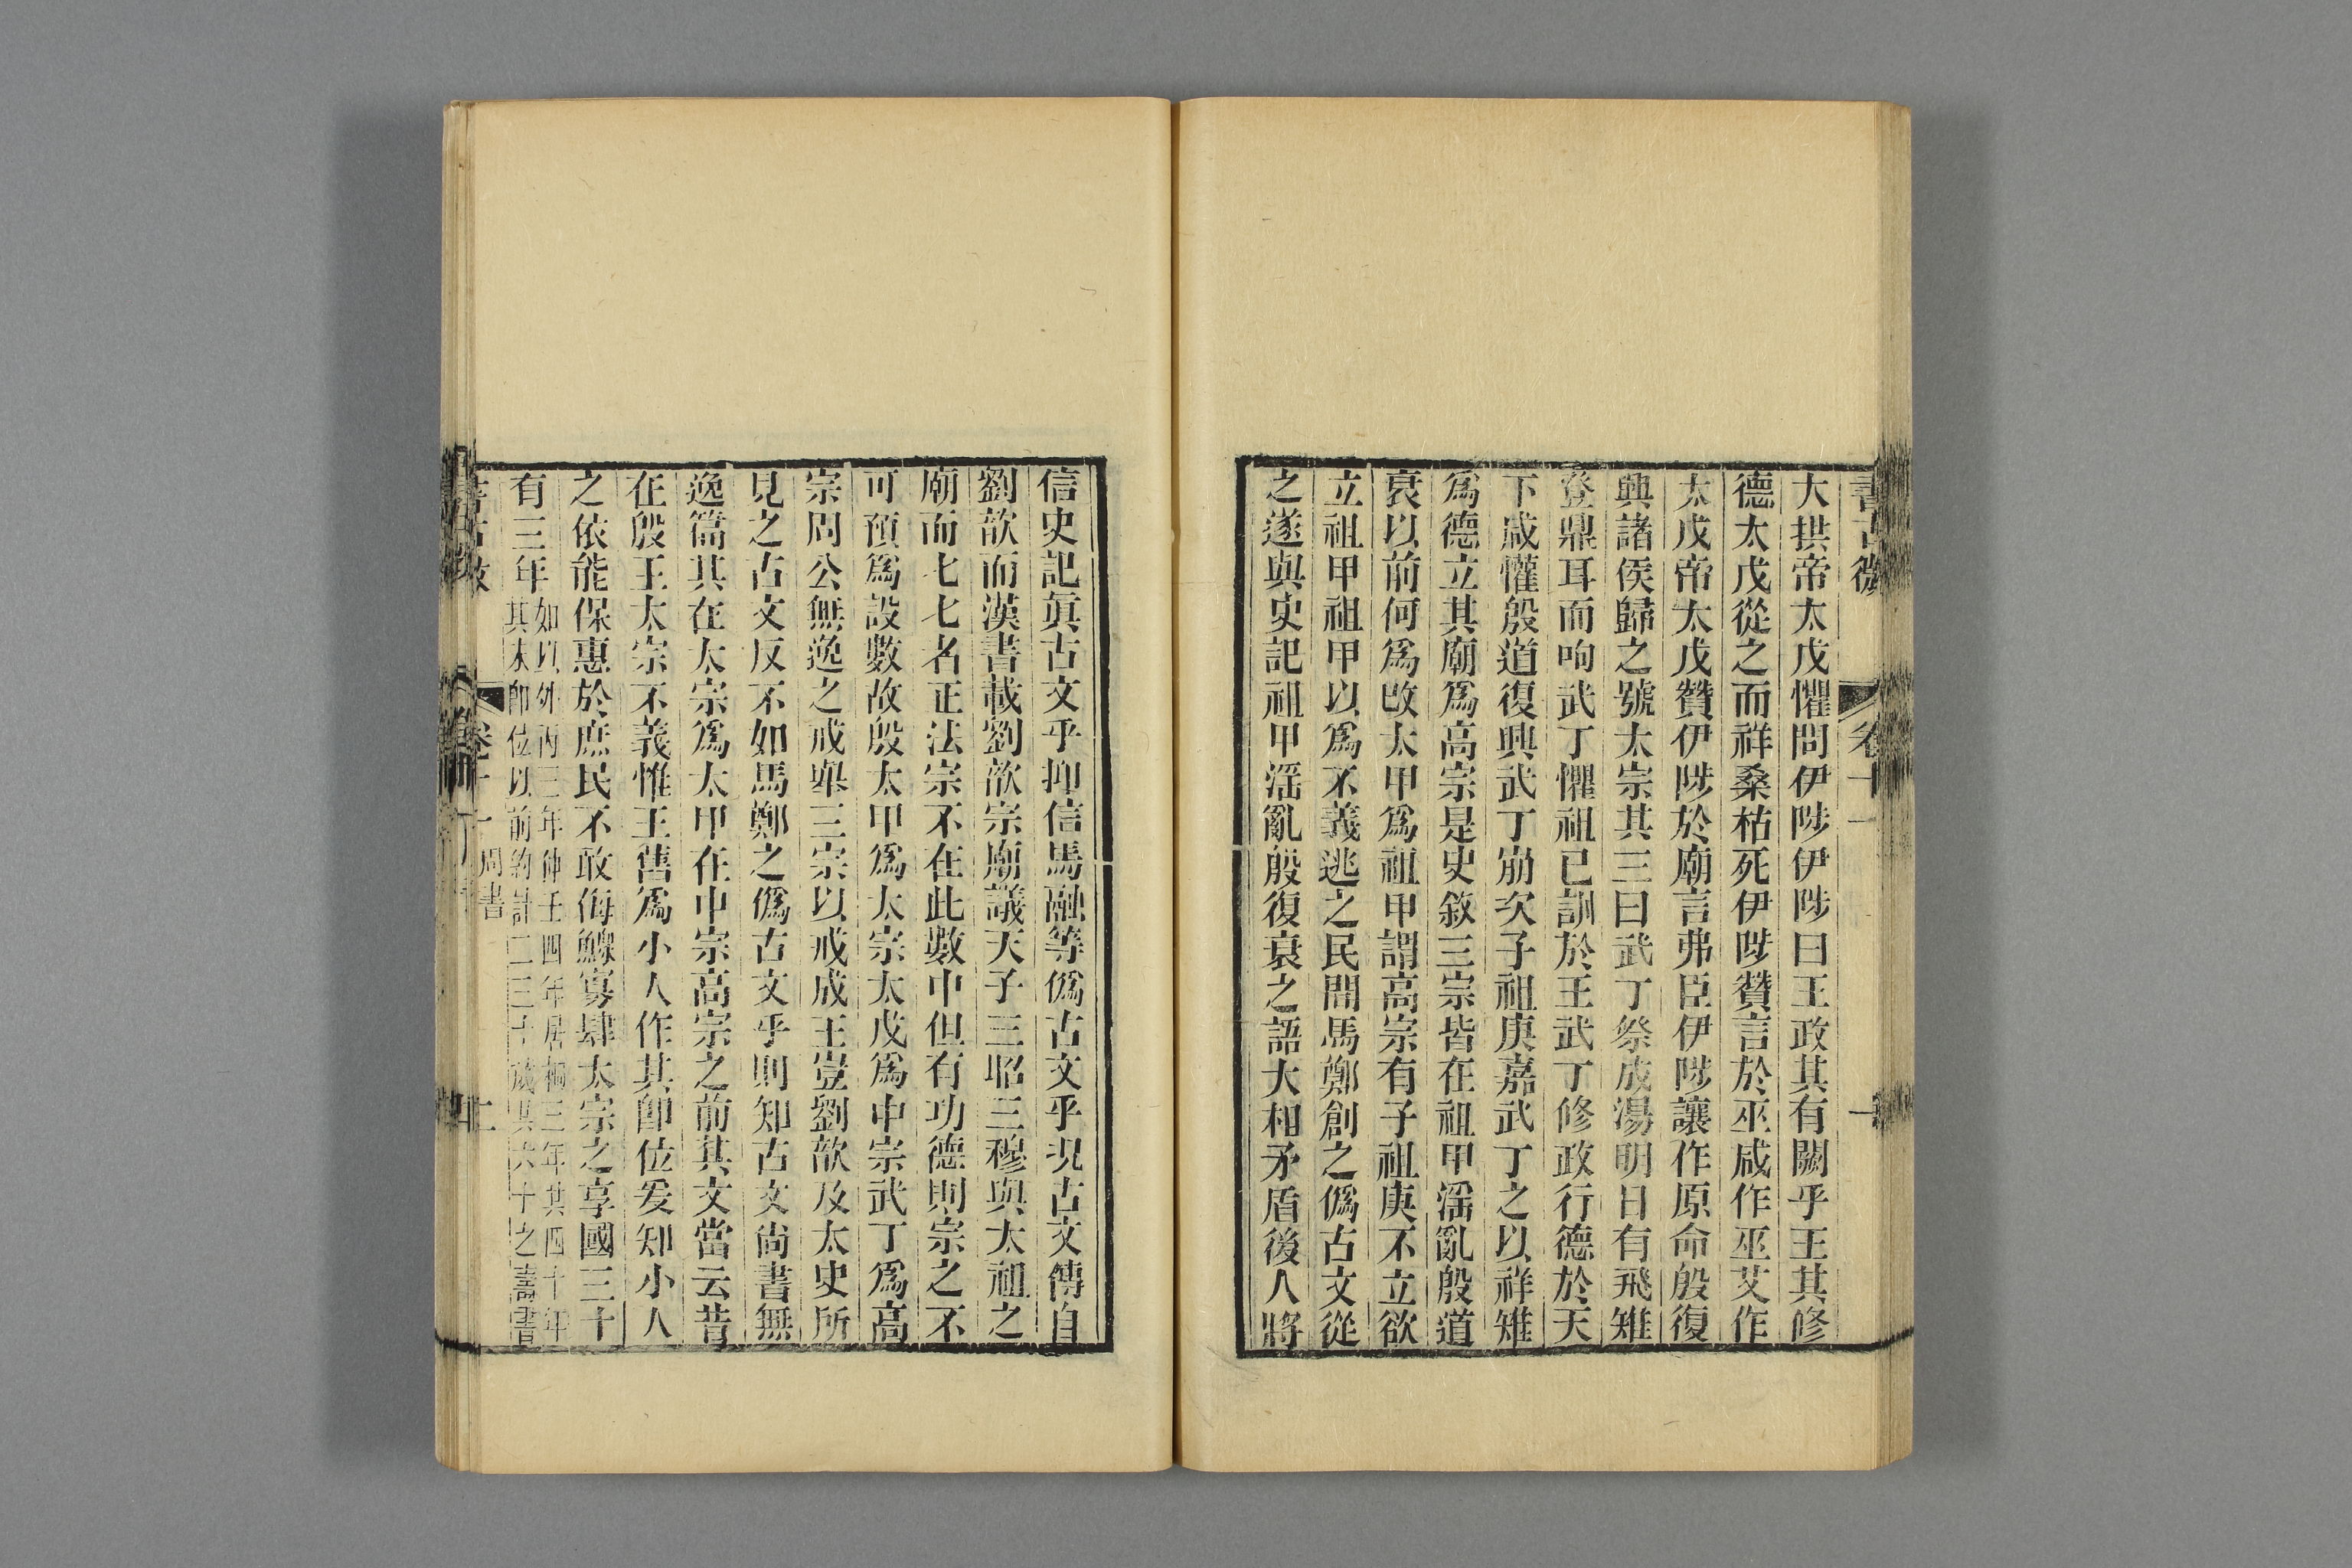 書古微
卷十一
大拱帝太戊懼問伊陟伊陟曰王政其有闕乎王其修
德太戊從之而祥桑枯死伊陟贊言於巫咸作巫艾作
太戊帝太戊贊伊陟於廟言弗臣伊陟讓作原命殷復
興諸侯歸之號太宗其三曰武丁祭成湯明日有飛雉
登鼎耳而呴武丁懼祖己訓於王武丁修政行德於天
下咸懽殷道復興武丁崩次子祖庚嘉武丁之以祥雉
爲德立其廟爲高宗是史敘三宗皆在祖甲淫亂殷道
衰以前何爲改太甲爲祖甲謂高宗有子祖庚不立欲
立祖甲祖甲以爲不義逃之民間馬鄭創之僞古文從
之遂與史記祖甲淫亂殷復衰之語大相矛盾後人將
信史記眞古文乎抑信馬融等僞古文乎況古文傳自
劉歆而漢書載劉歆宗廟議天子三昭三穆與太祖之
廟而七七名正法宗不在此數中但有功德則宗之不
可預爲設數故殷太甲爲太宗太戊爲中宗武丁爲高
宗周公無逸之戒舉三宗以戒成王豈劉歆及太史所
見之古文反不如馬鄭之僞古文乎則知古文尚書無
逸篇其在太宗爲太甲在中宗高宗之前其文當云昔
在殷王太宗不義惟王舊爲小人作其卽位爰知小人
之依能保惠於庶民不敢侮鰥寡肆太宗之享國三十
有三年如以外丙三年仲壬四年居桐三年共四十年
其末卽位以前約計二三十歲共六十之壽書
書古微
卷十一 周書